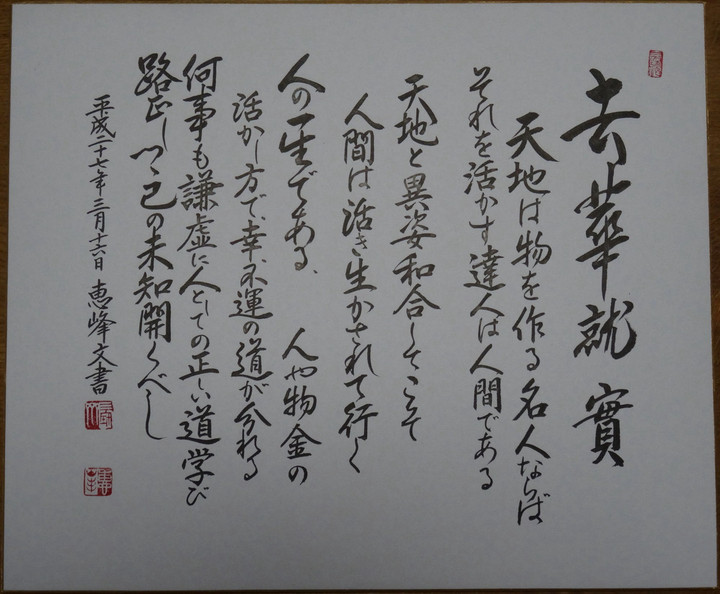 去華就實
天地は物を作る名人ならば
それを活かす達人は人間である
天地と異姿和合してこそ
人間は活き生かされて行く
人の一生である、人や物金の
活かし方で、幸、不運の道が分れる
何事も謙虚に人としての正しい道学び
路正しつつ己の未知開くべし
平成二十七年三月十六日 恵峰文書